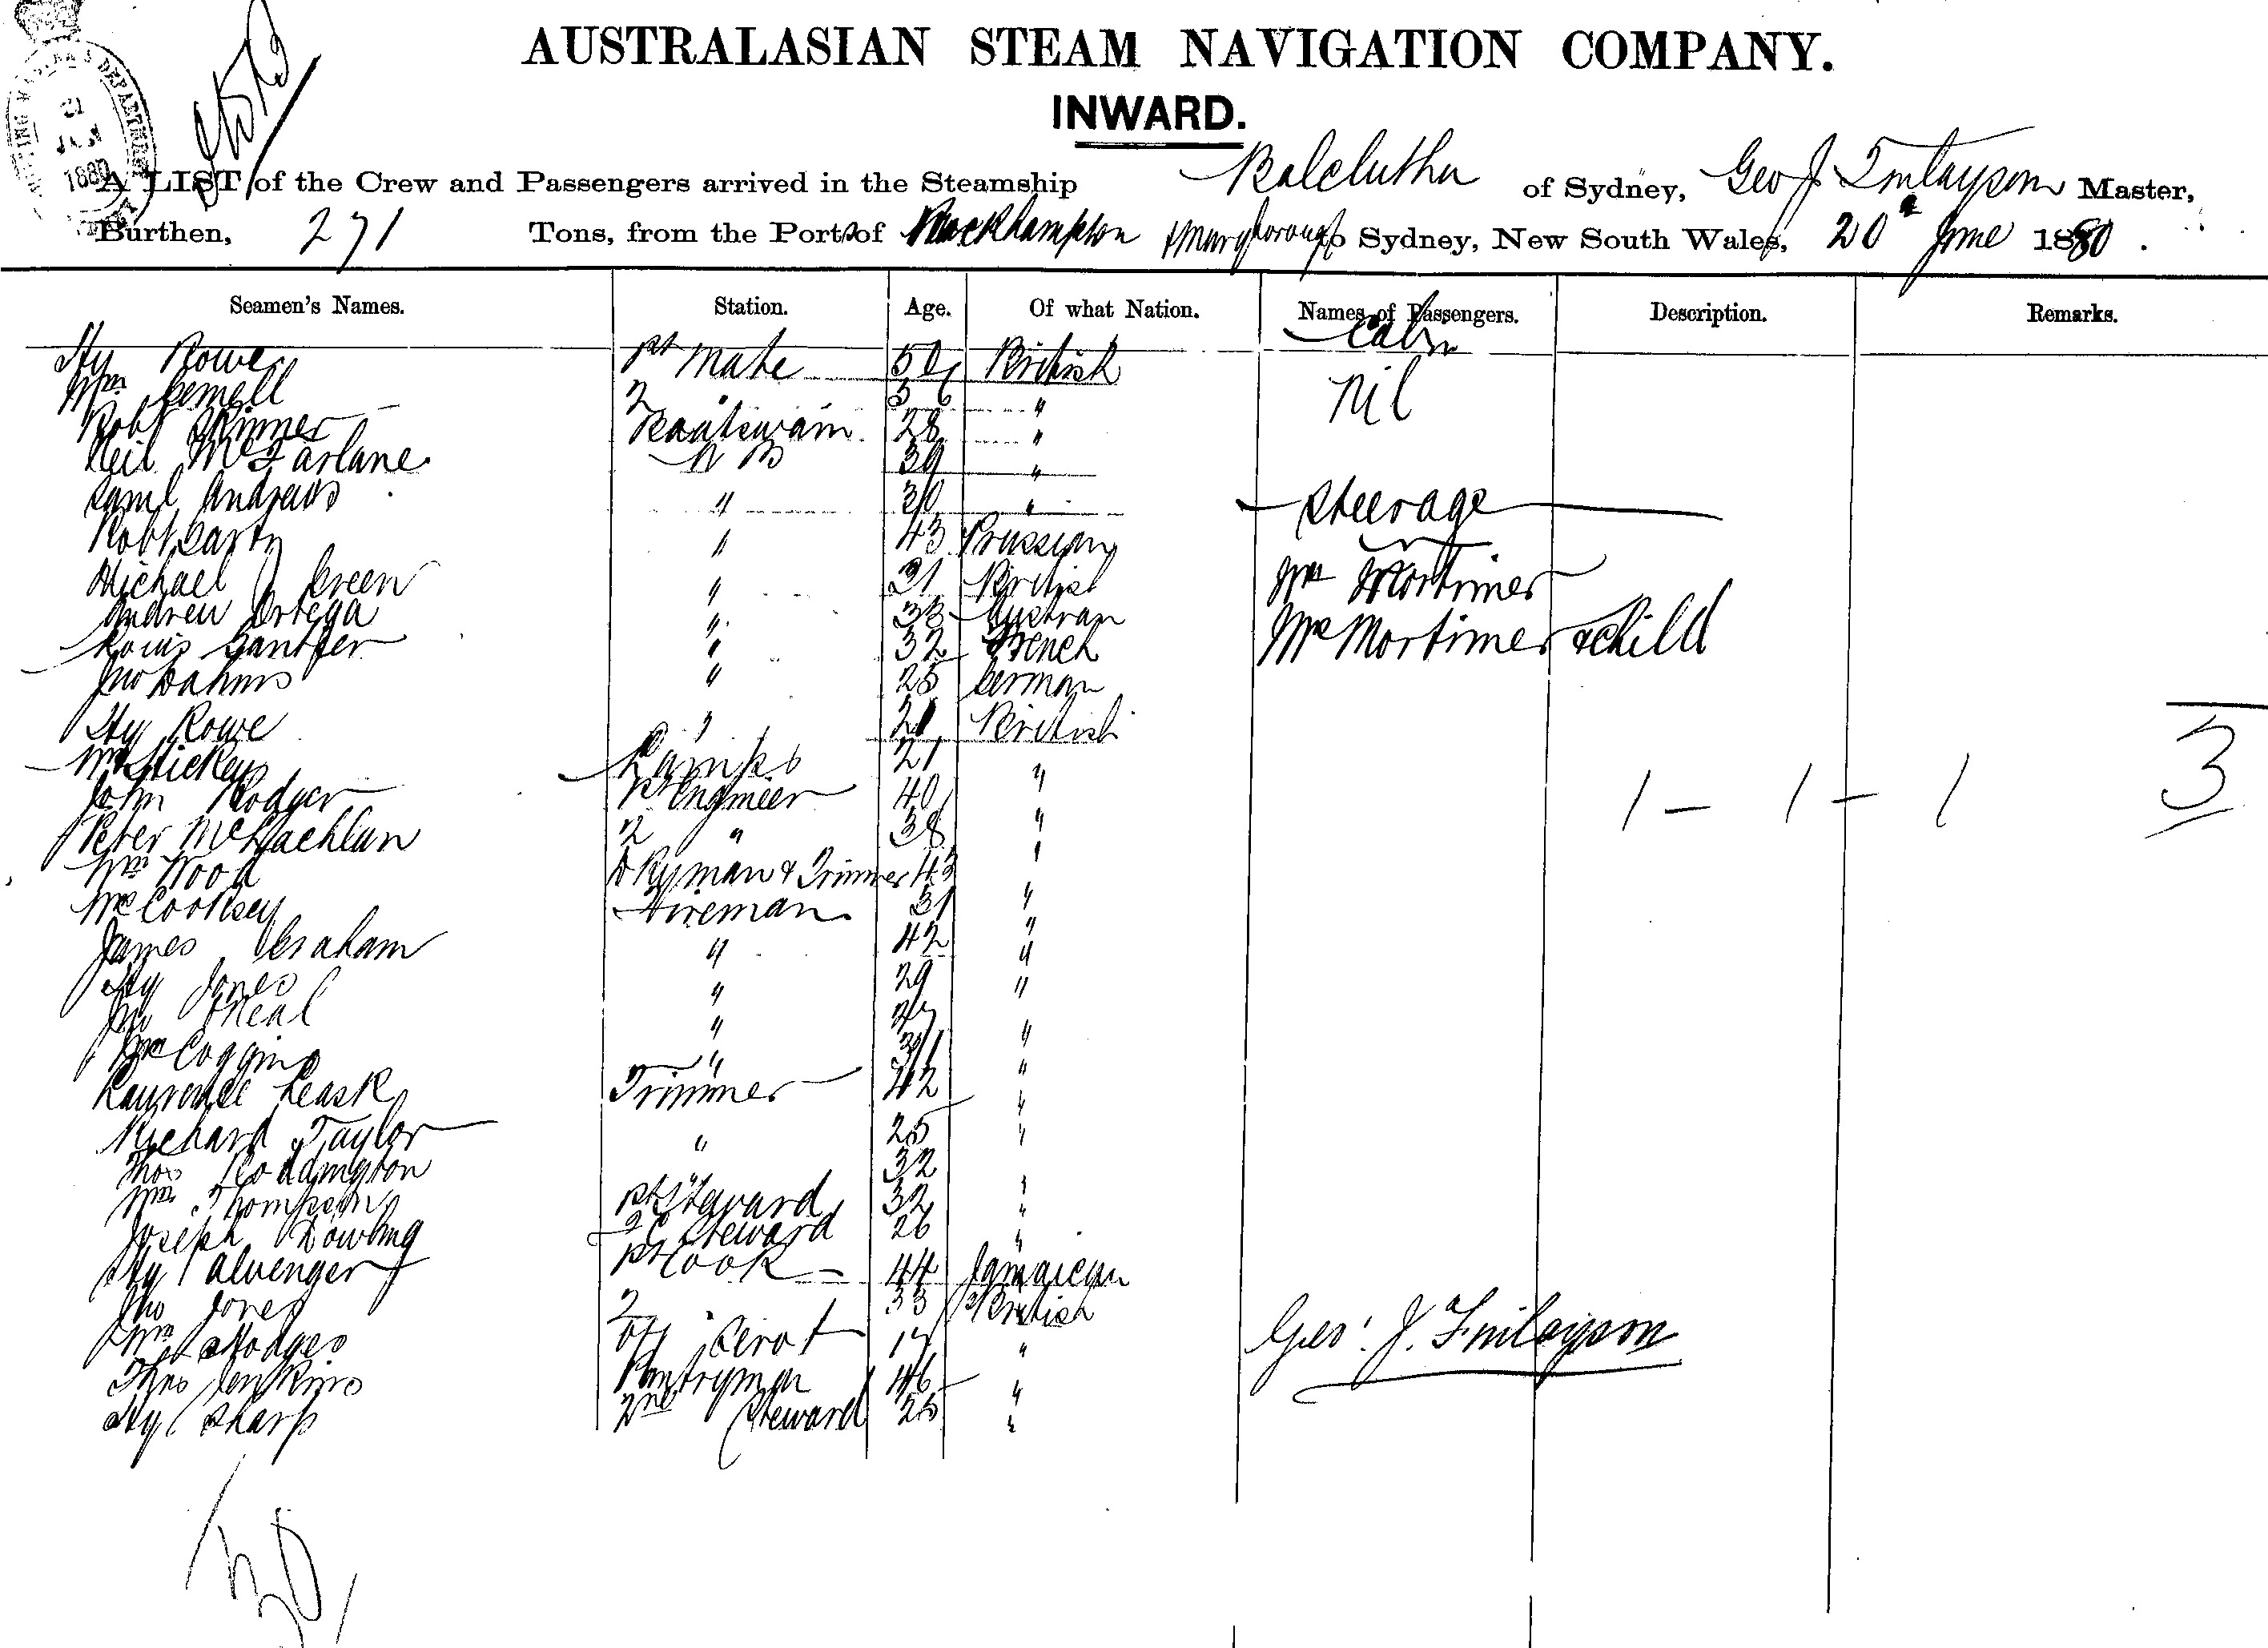 AUSTRALASIAN STEAM NAVIGATION COMPANY.
INWARD.
A LIST of the Crew and Passengers arrived in the Steamship Balclutha of Sydney, Geo J Finlayson Master,
Burthen, 271 Tons, from the Ports of Rockhampton & Maryborough to Sydney, New South Wales, 20th June 1880.
Seamen's Names. Station. Age. Of what Nation. Names of Passengers. Description. Remarks.
Cabin
Hy Rowe 1st Mate British
Wm Gemell 2 " 36 " Nil
Robt Skinner Boatswain 28 "
Neil McFarlane A B 39 "
Saml Andrews " 30 " Steerage
Robt Carty " 43 Prussian
Michael Green " 31 British Wm Mortimer
Andrew Ortega " 33 Austrian Mrs Mortimer & Child
Louis " 32 French
Jno Dahms " 25 German
Hy Rowe " 21 British
Wm Hickey Lamps 21 "
John Rodger 1st Engineer 40 " 1 - 1 - 1 3
Peter McLachlan 2 " 38 "
Wm Wood Dkyman & Trimmer 43 "
Wm Cooksey Fireman 31 "
James Graham " 42 "
Hy Jones " 29 "
Jno Oneal " "
Wm Coggins " 31 "
Laurence Leask Trimmer 42 "
Richard Taylor " 25 "
Thos Coddington 32 "
Wm Thompson 1st Steward 32 "
Joseph Dowling 2 C Steward 26 "
Hy Alvenger 1st Cook 44 Jamaican
Jno Jones 2 " 33 British
Wm Hodges Off Servt 17 " Geo: J. Finlayson
Thos Jenkins Pantryman 46 "
Hy Sharp 2nd Steward 25 "
30